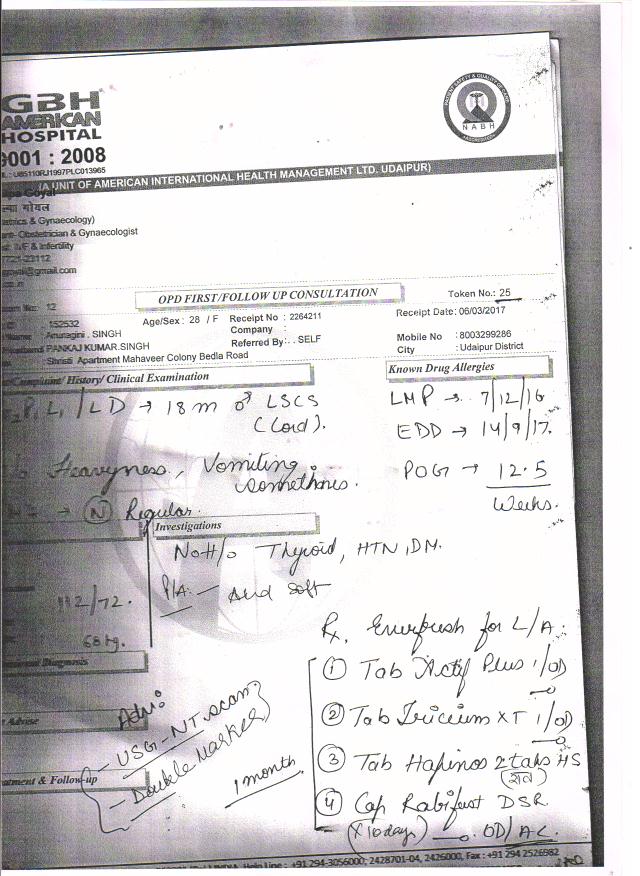 GBH
AMERICAN
HOSPITAL
9001 : 2008
U85110RJ1997PLC013965
(A UNIT OF AMERICAN INTERNATIONAL HEALTH MANAGEMENT LTD. UDAIPUR)
PATIENT SAFETY & QUALITY OF CARE
NABH
Goyal
गोयल
& Gynaecology)
Obstetrician & Gynaecologist
IVF & Infertility
@gmail.com
OPD FIRST/FOLLOW UP CONSULTATION
Token No.: 25
No: 12
152532
Age/Sex : 28 / F
Receipt No : 2264211
Receipt Date: 06/03/2017
Anuragini . SINGH
Company :
PANKAJ KUMAR.SINGH
Referred By: . SELF
Mobile No :8003299286
: Shristi Apartment Mahaveer Colony Bedla Road
City : Udaipur District
Complaint/ History/ Clinical Examination
Known Drug Allergies
P1 L1 / LD → 18 m LSCS
(Cord).
LMP → 7/12/16
EDD → 14/9/17.
Heavyness, Vomiting
sometimes.
POG → 12.5
Weeks.
→ (N) Regular.
Investigations
No H/o Thyroid, HTN, DM.
P/A: — Abd soft
112/72.
68 kg.
Diagnosis
Rx. for L/A:
① Tab Actif Plus 1/OD
② Tab XT 1/OD
③ Tab 2 tabs HS
④ Cap Rabifast DSR
(X 10 days) OD/AC.
Advise
Adv:
- USG-NT scan
- Double Marker
1 month
& Follow-up
Help Line : +91 294-3056000, 2428701-04, 2426000, Fax : +91 294 2526982